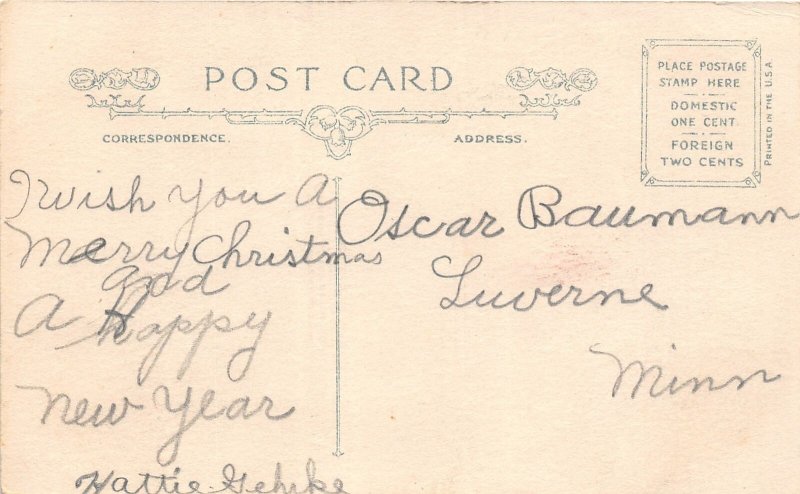 POST CARD
CORRESPONDENCE.
ADDRESS.
PLACE POSTAGE
STAMP HERE
DOMESTIC
ONE CENT
FOREIGN
TWO CENTS
PRINTED IN THE U.S.A
I Wish You A
Merry Christmas
and
A Happy
New Year
Hattie Gehrke
Oscar Baumann
Luverne
Minn